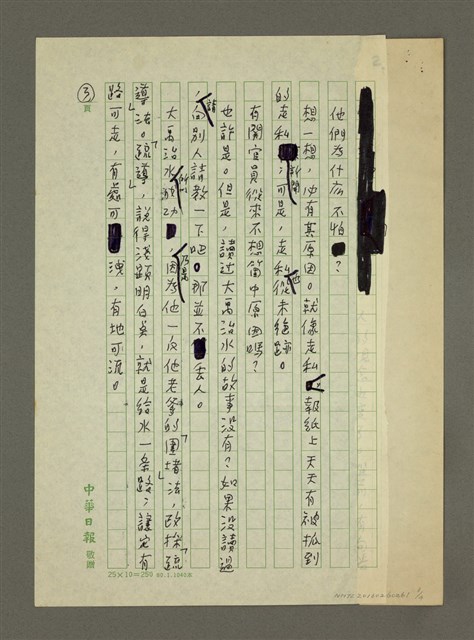 他們為什麼不怕?
想一想,必有其原因。就像走私,報紙上天天有被抓到
的走私新聞;可是,走私他從未絕跡。
有關官員從來不想箇中原因嗎?
也許是。但是,讀過大禹治水的故事沒有?如果沒讀過
,請向別人請教一下吧。那並不丟人。
大禹治水所以成功,乃是因為他一反他老爹的「圍堵」法,改採「疏
導」法。「疏導」,說得淺顯明白矣,就是給水一條路;讓它有
路可走,有處可洩,有地可流。
③頁
中華日報 敬贈
25×10=250 80.1.1040本